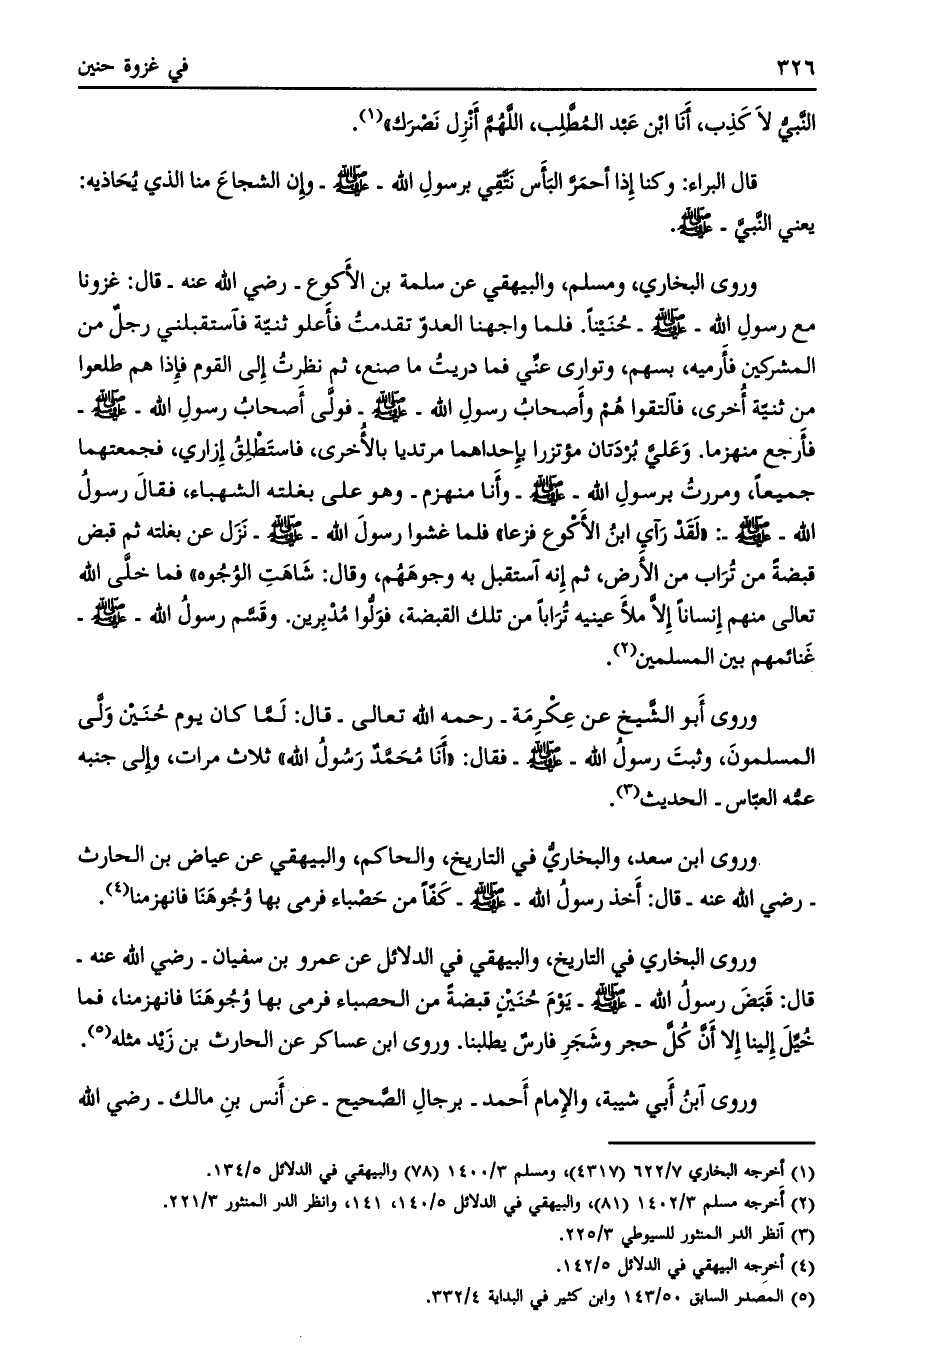 ٣٢٦ في غزوة حنين
النَّبيُّ لاَ كَذِب، أَنَا ابْن عَبْد المُطَّلِب، اللَّهُمَّ أَنْزِل نَصْرَك»(١).
قال البراء: وكنا إذا أحمَرَّ البَأَس نَتَّقِي برسولِ الله ـ ﷺ ـ وإن الشجاعَ منا الذي يُحَاذيه:
يعني النَّبيَّ ـ ﷺ.
وروى البخاري، ومسلم، والبيهقي عن سلمة بن الأَكوع ـ رضي الله عنه ـ قال: غزونا
مع رسولِ الله ـ ﷺ ـ حُنَيْناً. فلما واجهنا العدوّ تقدمتُ فأَعلو ثنيّة فآستقبلني رجلٌ من
المشركين فأَرميه، بسهم، وتوارى عنِّي فما دريتُ ما صنع، ثم نظرتُ إلى القوم فإذا هم طلعوا
من ثنيّة أُخرى، فآلتقوا هُمْ وأَصحابُ رسولِ الله ـ ﷺ ـ فولَّى أَصحابُ رسولِ الله ـ ﷺ ـ
فأَرجع منهزما. وَعَليَّ بُرْدَتان مؤتزرا بإحداهما مرتديا بالأُخرى، فاستَطْلِقُ إزاري، فجمعتهما
جميعاً، ومررتُ برسولِ الله ـ ﷺ ـ وأَنا منهزم ـ وهو على بغلته الشهباء، فقالَ رسولُ
الله ـ ﷺ ـ: «لَقَدْ رَآي ابنُ الأَكْوع فزعا» فلما غشوا رسولَ الله ـ ﷺ ـ نَزَل عن بغلته ثم قبض
قبضةً من تُرَاب من الأَرض، ثم إنه آستقبل به وجوهَهُم، وقال: شَاهَتِ الوُجُوه» فما خلَّى الله
تعالى منهم إنساناً إلاَّ ملأَ عينيه تُرَاباً من تلك القبضة، فوَلُّوا مُدْبِرين. وقَسَّم رسولُ الله ـ ﷺ ـ
غَنائمهم بين المسلمين(٢).
وروى أَبو الشَّيخ عن عِكْرِمَة ـ رحمه الله تعالى ـ قال: لَمَّا كان يوم حُنَيْن وَلَّى
المسلمونَ، وثبتَ رسولُ الله ـ ﷺ ـ فقال: «أَنَا مُحَمَّدٌ رَسُولُ الله» ثلاث مرات، وإلى جنبه
عمُّه العبّاس ـ الحديث(٣).
وروى ابن سعد، والبخاريُّ في التاريخ، والحاكم، والبيهقي عن عياض بن الحارث
ـ رضي الله عنه ـ قال: أَخذ رسولُ الله ـ ﷺ ـ كَفّاً من حَصْباء فرمى بها وُجُوهَنَا فانهزمنا(٤).
وروى البخاري في التاريخ، والبيهقي في الدلائل عن عمرو بن سفيان ـ رضي الله عنه ـ
قال: قَبَضَ رسولُ الله ـ ﷺ ـ يَوْمَ حُنَيْنٍ قبضةً من الحصباء فرمى بها وُجُوهَنَا فانهزمنا، فما
خُيِّلَ إلينا إلا أَنَّ كُلَّ حجر وشَجَرِ فارسٌ يطلبنا. وروى ابن عساكر عن الحارث بن زَيْد مثله(٥).
وروى آبنُ أَبي شيبة، والإمام أَحمد ـ برجالِ الصَّحيح ـ عن أَنس بنِ مالك ـ رضي الله
(١) أخرجه البخاري ٦٢٢/٧ (٤٣١٧)، ومسلم ١٤٠٠/٣ (٧٨) والبيهقي في الدلائل ١٣٤/٥.
(٢) أخرجه مسلم ١٤٠٢/٣ (٨١)، والبيهقي في الدلائل ١٤٠/٥، ١٤١، وانظر الدر المنثور ٢٢١/٣.
(٣) آنظر الدر المنثور للسيوطي ٢٢٥/٣.
(٤) أخرجه البيهقي في الدلائل ١٤٢/٥.
(٥) المصدر السابق ١٤٣/٥٠ وابن كثير في البداية ٣٣٢/٤.